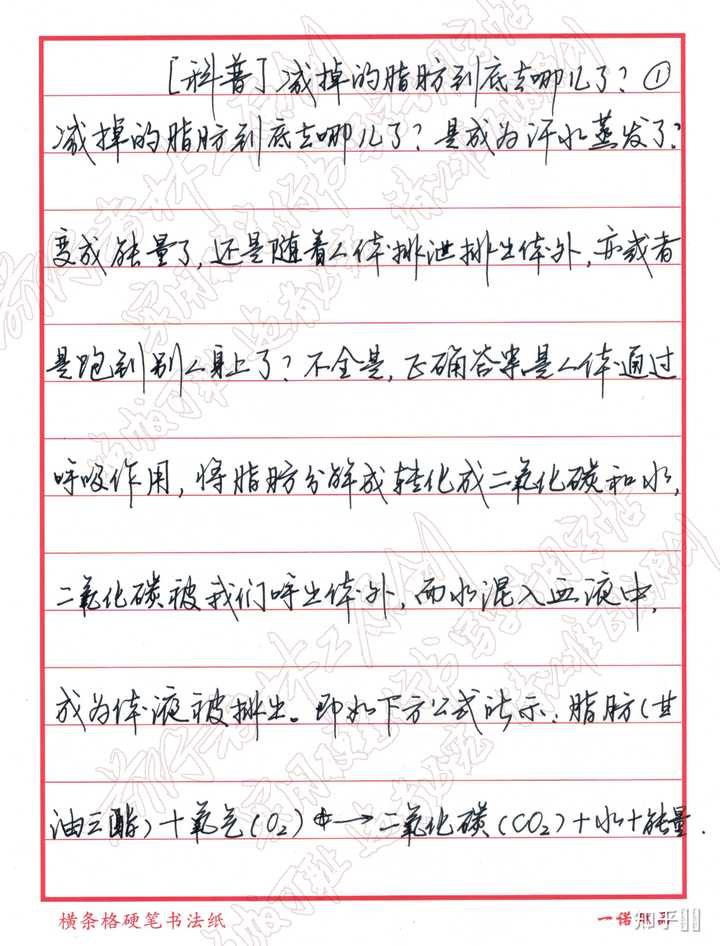 [科普]减掉的脂肪到底去哪儿了？①
减掉的脂肪到底去哪儿了？是成为汗水蒸发了？
变成能量了，还是随着人体排泄排出体外，亦或者
是跑到别人身上了？不全是，正确答案是人体通过
呼吸作用，将脂肪分解成转化成二氧化碳和水，
二氧化碳被我们呼出体外，而水混入血液中，
成为体液被排出。即如下方公式所示：脂肪（甘
油三酯）+氧气（O₂）→二氧化碳（CO₂）+水+能量.
横条格硬笔书法纸
一诺
知乎